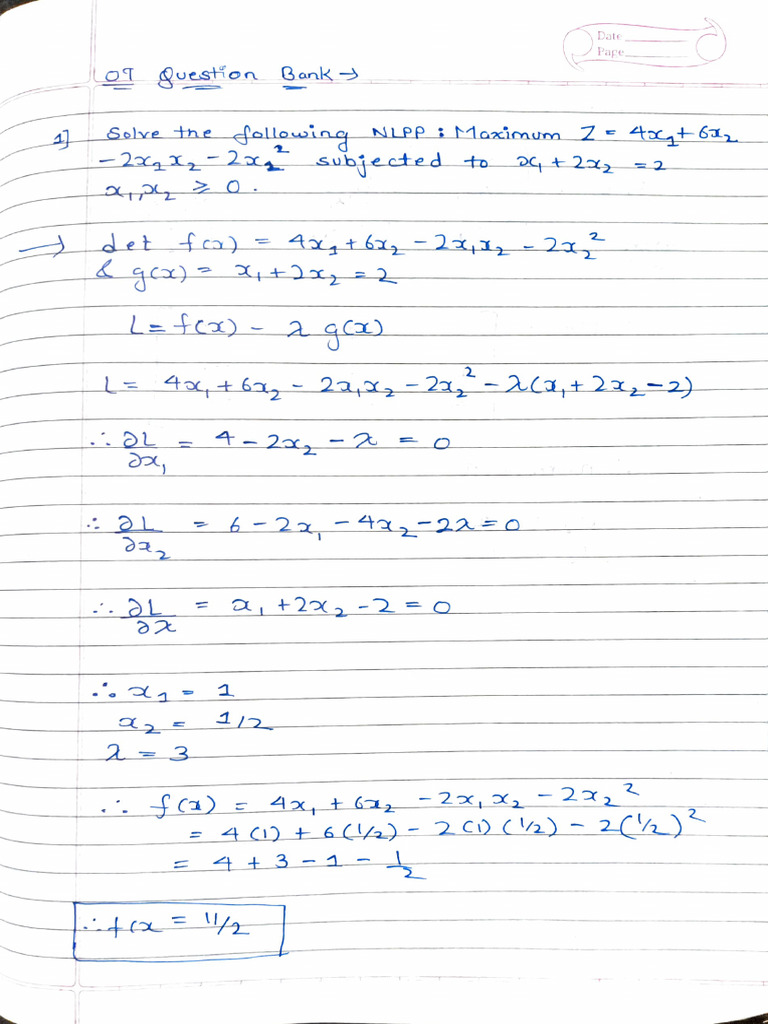 Date
Page
OT Question Bank →
1] Solve the following NLPP : Maximum Z = 4x₁ + 6x₂
- 2x₁x₂ - 2x₂² subjected to x₁ + 2x₂ = 2
x₁, x₂ ≥ 0.
→ Let f(x) = 4x₁ + 6x₂ - 2x₁x₂ - 2x₂²
& g(x) = x₁ + 2x₂ = 2
L = f(x) - λ g(x)
L = 4x₁ + 6x₂ - 2x₁x₂ - 2x₂² - λ(x₁ + 2x₂ - 2)
∴ ∂L/∂x₁ = 4 - 2x₂ - λ = 0
∴ ∂L/∂x₂ = 6 - 2x₁ - 4x₂ - 2λ = 0
∴ ∂L/∂λ = x₁ + 2x₂ - 2 = 0
∴ x₁ = 1
x₂ = 1/2
λ = 3
∴ f(x) = 4x₁ + 6x₂ - 2x₁x₂ - 2x₂²
= 4(1) + 6(1/2) - 2(1)(1/2) - 2(1/2)²
= 4 + 3 - 1 - 1/2
∴ f(x = 11/2